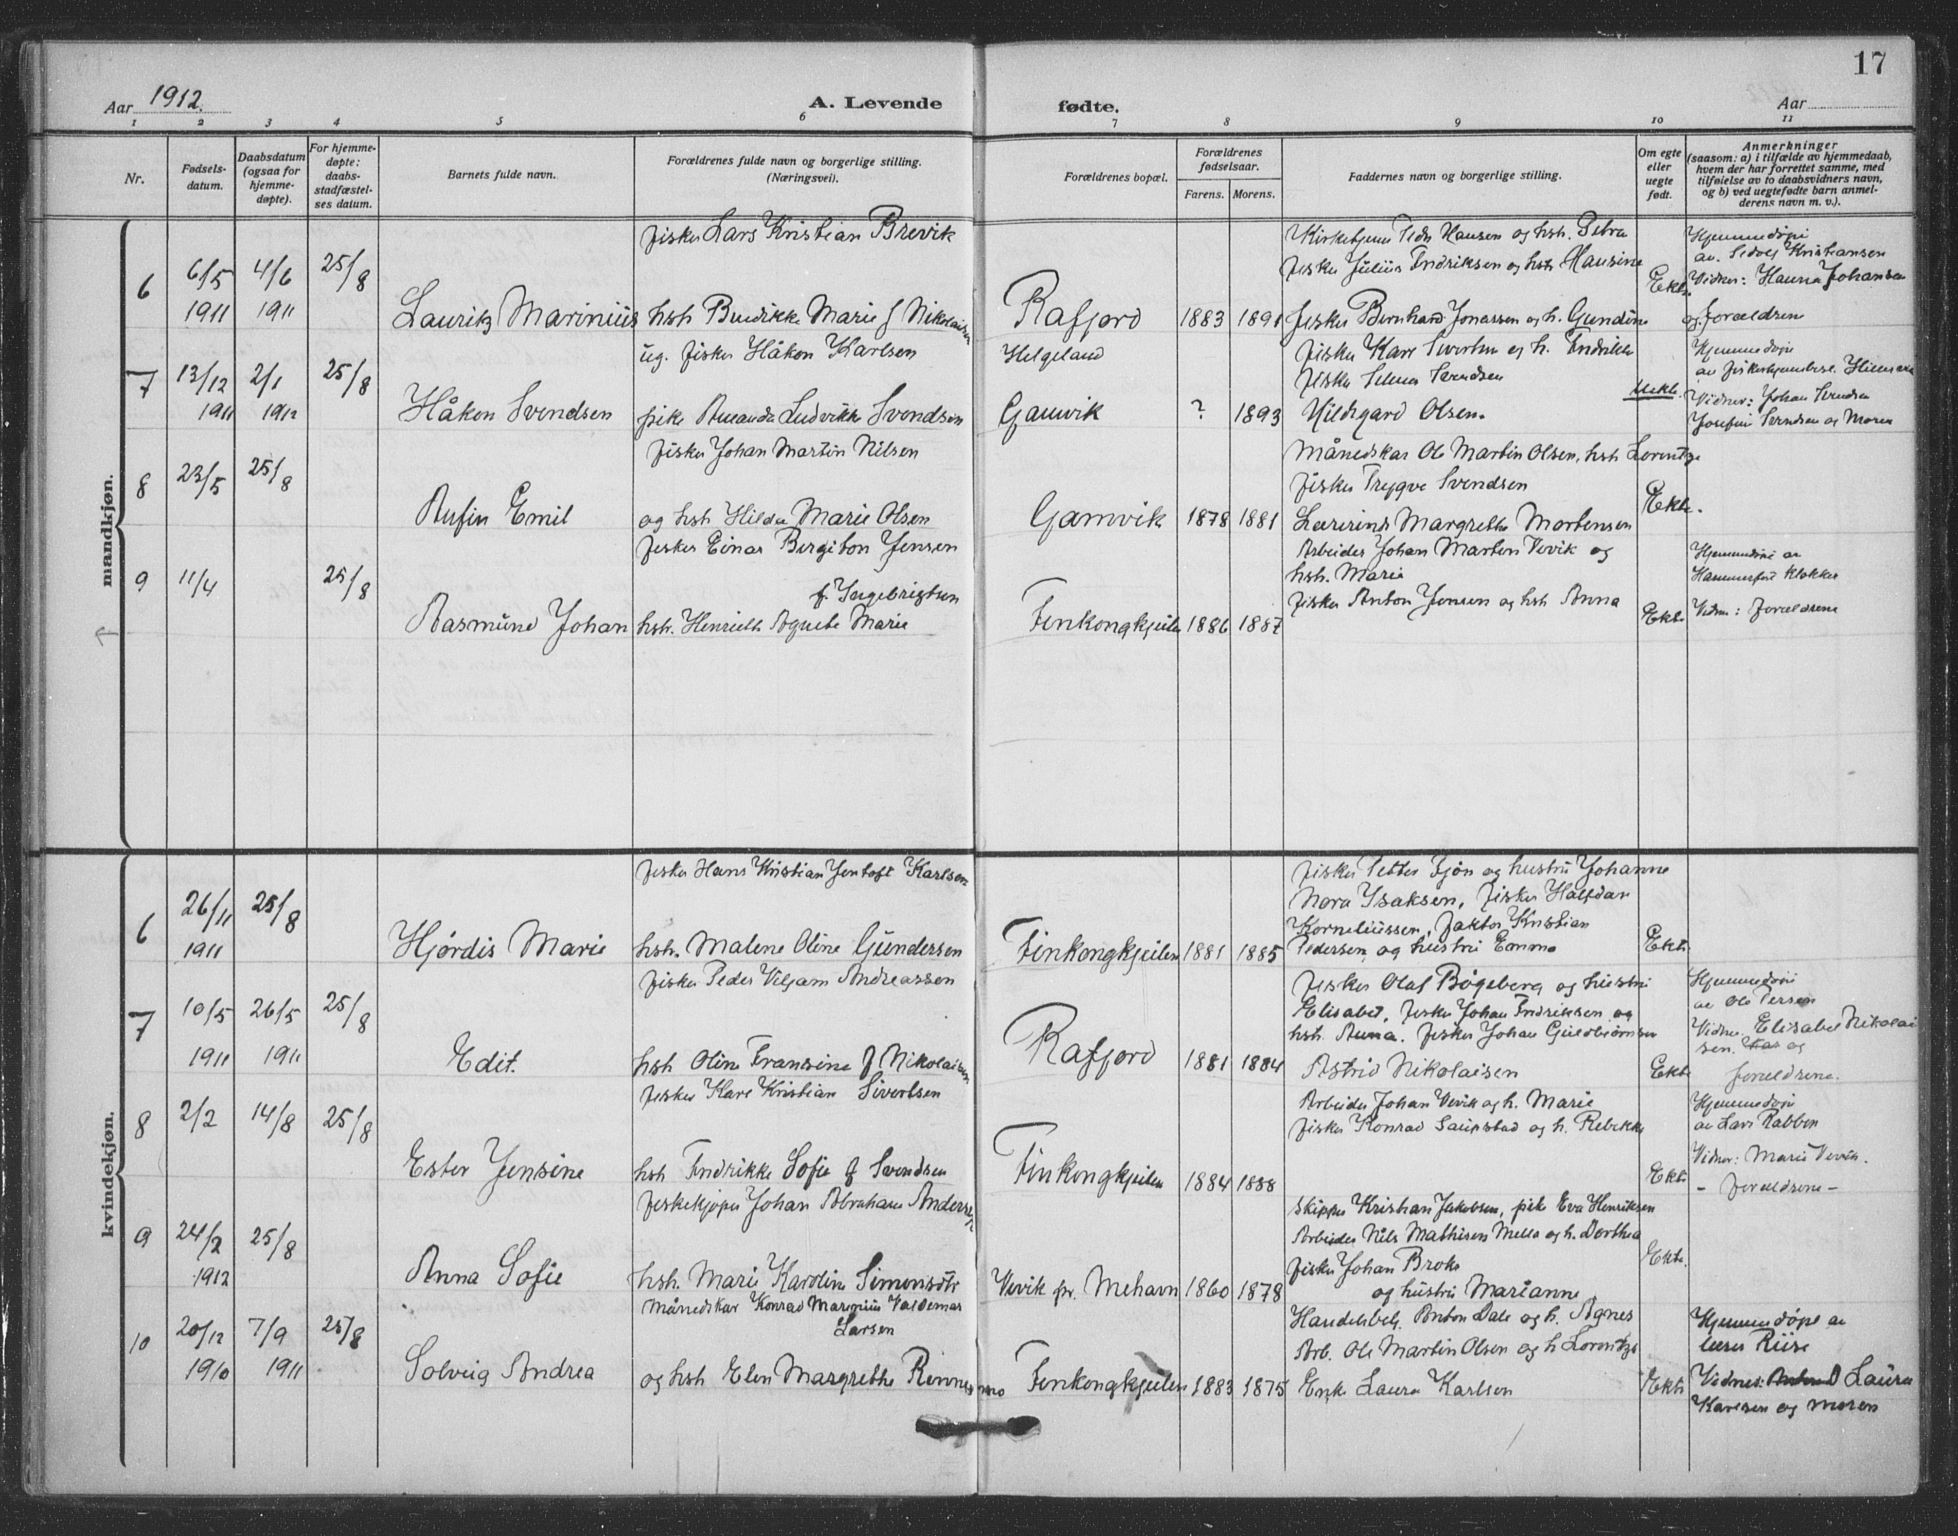 17
Aar 1912.
A. Levende fødte.
Aar
1 2 3 4 5 6 7 8 9 10 11
Nr.
Fødsels-
datum.
Daabsdatum
(ogsaa for
hjemme-
døpte).
For hjemme-
døpte:
daabs-
stadfæstel-
ses datum.
Barnets fulde navn.
Forældrenes fulde navn og borgerlige stilling.
(Næringsvei).
Forældrenes bopæl.
Forældrenes
fødselsaar.
Farens. Morens.
Faddernes navn og borgerlige stilling.
Om egte
eller
uegte
født.
Anmerkninger
(saasom: a) i tilfælde av hjemmedaab,
hvem der har forrettet samme, med
tilføielse av to daabsvidners navn,
og b) ved uegtefødte barn anmel-
derens navn m. v.).
mandkjøn.
6
6/5
1911
4/6
1911
25/8
Lauritz Marinius
fisker Lars Kristian Brevik
hst. Marie f Nikolaisen
Rafjord
1883
1891
Kirketjener Peder Hansen og hst. Petra
fisker Julius Fredriksen og hst Hansine
fisker Bernhard Jonassen og h. Gundine
Ekte.
Hjemmedøpt
av. Sedolf Kristiansen
Vidner: Hanna Johansen
og forældrene
7
13/12
1911
2/1
1912
25/8
Håkon Svendsen
ug. fisker Håkon Karlsen
pike Amanda Ludvikke Svendsen
Helgeland
Gamvik
?
1893
fisker Kare Sivertsen og h. Fredrikke
fisker Selmer Svendsen
Hildegard Olsen.
Uekte.
Hjemmedøpt
Vidner: Johan Svendsen
Josefine Svendsen og Moren
8
23/5
25/8
Rufin Emil
fisker Johan Martin Nilsen
og hst Hilda Marie Olsen
Gamvik
1878
1881
Månedskar Ole Martin Olsen, hst Lorentze
fisker Trygve Svendsen
Lærerinde Margrethe Mortensen
Ekte.
9
11/4
25/8
Rasmund Johan
fisker Einar Bergiton Jensen
f. Ingebrigtsen
hst. Henriette Agnete Marie
Finkongkjeilen
1886
1887
Arbeider Johan Martin Vevik og
hst. Marie
fisker Anton Jensen og hst Anna
Ekte
Hjemmedøpt av
Hammerfest klokker
Vidner: forældrene
kvindekjøn.
6
26/11
1911
25/8
Hjørdis Marie
fisker Hans Kristian Jentoft Karlsen
hst. Malene Oline Gundersen
Finkongkjeilen
1881
1885
fisker Petter Sjøn og hustru Johanne
Nora Isaksen, fisker Halfdan
Korneliussen, faktor Kristian
Pedersen og hustru Emma
Ekte.
7
10/5
1911
26/5
1911
25/8
Edit.
fisker Peder Viljam Andreassen
hst Oline Fransine f Nikolaisen
Rafjord
1881
1884
fisker Olaf Bøgeberg og hustru
Elisabet, fisker Johan Fredriksen og
hst. Anna. fisker Johan Guldbjørnsen
Astrid Nikolaisen
Ekte
Hjemmedøpt
av Ole Persen
Vidner. Elisabet Nikolai
sen. og
forældrene.
8
2/2
14/8
25/8
Ester Jensine
fisker Kare Kristian Sivertsen
hst Fredrikke Sofie f Svendsen
Finkongkjeilen
1884
1888
Arbeider Johan Vevik og h. Marie
fisker Konrad Saupstad og h. Rebekka
Ekte
Hjemmedøpt
av Lars Rabben
Vidner: Marie Vevik.
- forældrene -
9
24/2
1912
25/8
Anna Sofie
fiskekjøper Johan Abraham Andersen
hst. Marie Karoline Simonsdtr
Vevik pr. Mehavn
1860
1878
Skipper Kristian Jakobsen, pike Eva Henriksen
Arbeider Nils Mathisen Mella og h. Dorthea
fisker Johan Broks
og hustru Marianne
Ekte.
10
20/12
1910
7/9
1911
25/8
Solveig Andrea
Månedskar Konrad Marenius Valdemar
Larsen
og hst Elen Margrethe Rennemo
Finkongkjeilen
1883
1875
Handelsbetj. Anton Dale og h. Agnes
Arb. Ole Martin Olsen og h Lorentze
Enke Laura Karlsen
Ekte
Hjemmedøpt av
lærer Riise
Vidner: Laura
Karlsen og moren